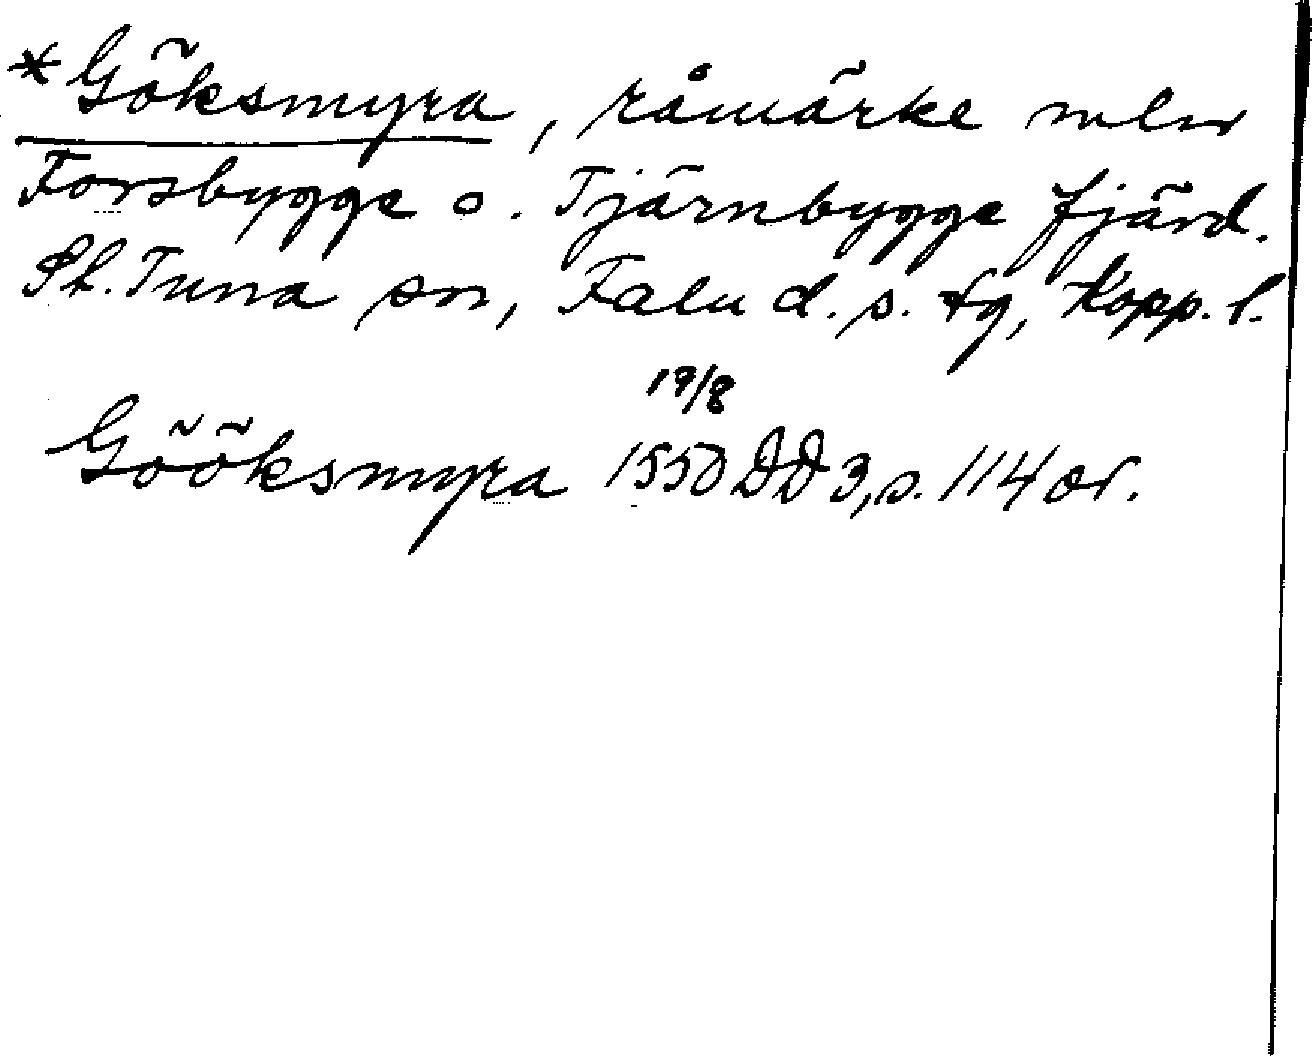 *Göksmyra, råmärke mln
Forsbygge o. Tjärnbygge fjärd.
St. Tuna sn, Falu d. s. tg, Kopp. l.
19/8
Gööksmyra 1550 DD 3, s. 114 or.